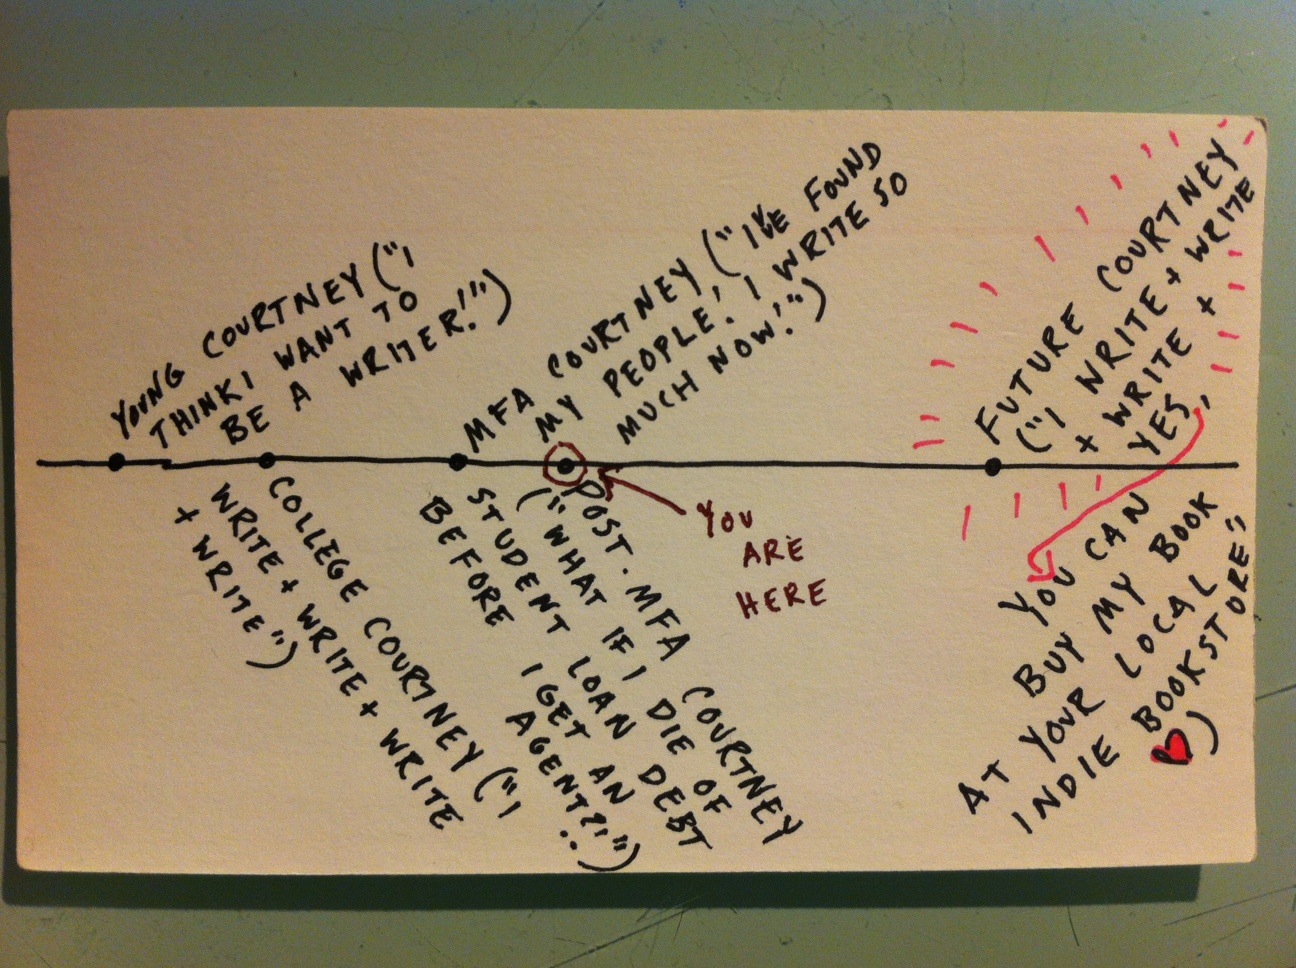 YOUNG COURTNEY ("I
THINK I WANT TO
BE A WRITER!")
COLLEGE COURTNEY ("I
WRITE + WRITE + WRITE
+ WRITE")
MFA COURTNEY ("I'VE FOUND
MY PEOPLE! I WRITE SO
MUCH NOW!")
POST-MFA COURTNEY
("WHAT IF I DIE OF
STUDENT LOAN DEBT
BEFORE I GET AN
AGENT?!")
YOU
ARE
HERE
FUTURE COURTNEY
("I WRITE + WRITE
+ WRITE +
YES,
YOU CAN
BUY MY BOOK
AT YOUR LOCAL
INDIE BOOKSTORE";
)